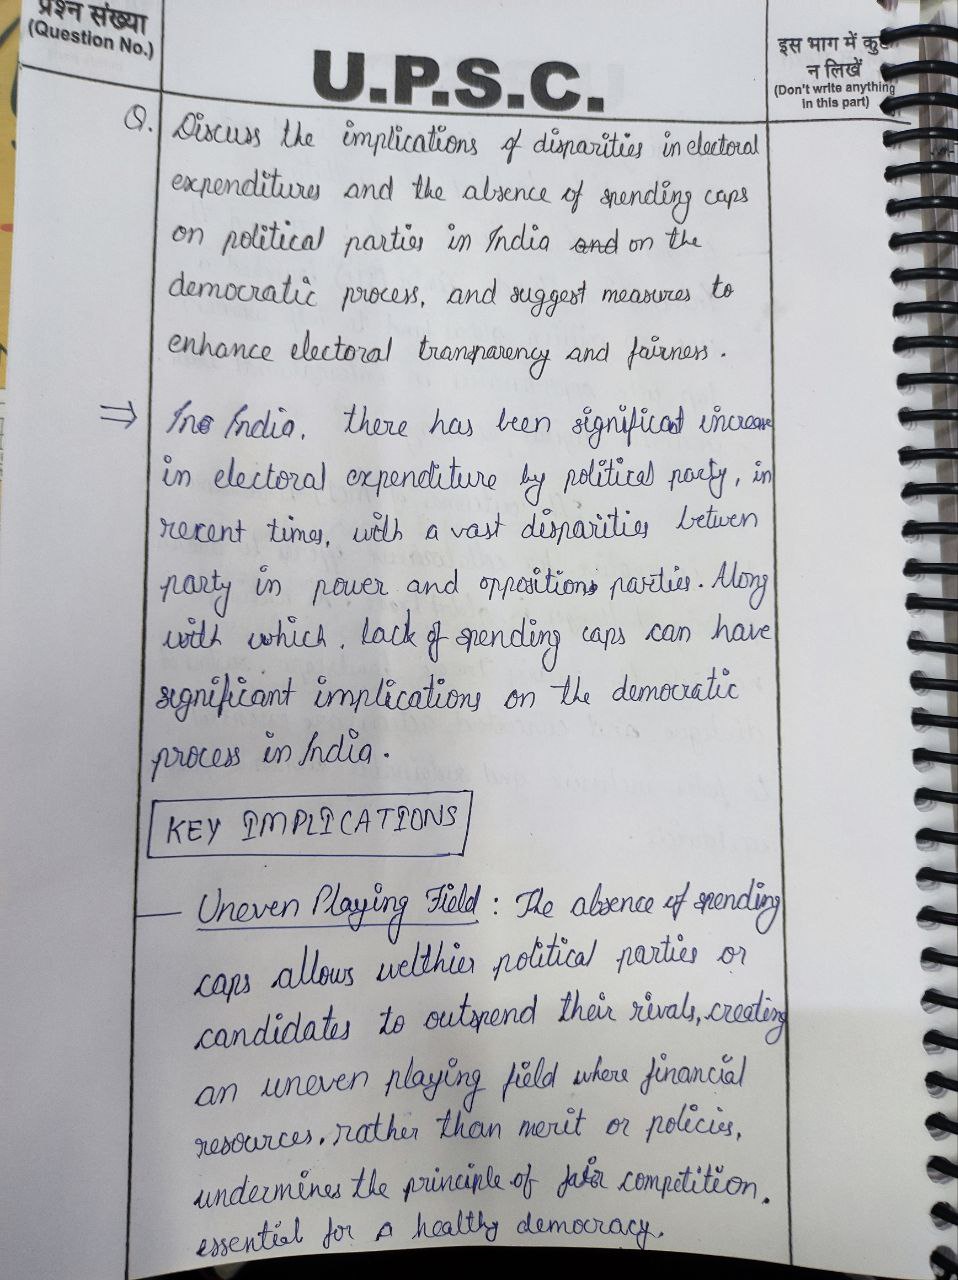 प्रश्न संख्या
(Question No.)
U.P.S.C.
इस भाग में कुछ
न लिखें
(Don't write anything
in this part)
Q. Discuss the implications of disparities in electoral
expenditures and the absence of spending caps
on political parties in India and on the
democratic process, and suggest measures to
enhance electoral transparency and fairness.
⇒ In India, there has been significant increase
in electoral expenditure by political party, in
recent times, with a vast disparities betwen
party in power and oppositions parties. Along
with which, lack of spending caps can have
significant implications on the democratic
process in India.
KEY IMPLICATIONS
— Uneven Playing Field : The absence of spending
caps allows welthier political parties or
candidates to outspend their rivals, creating
an uneven playing field where financial
resources, rather than merit or policies,
undermines the principle of fair competition.
essential for a healthy democracy.